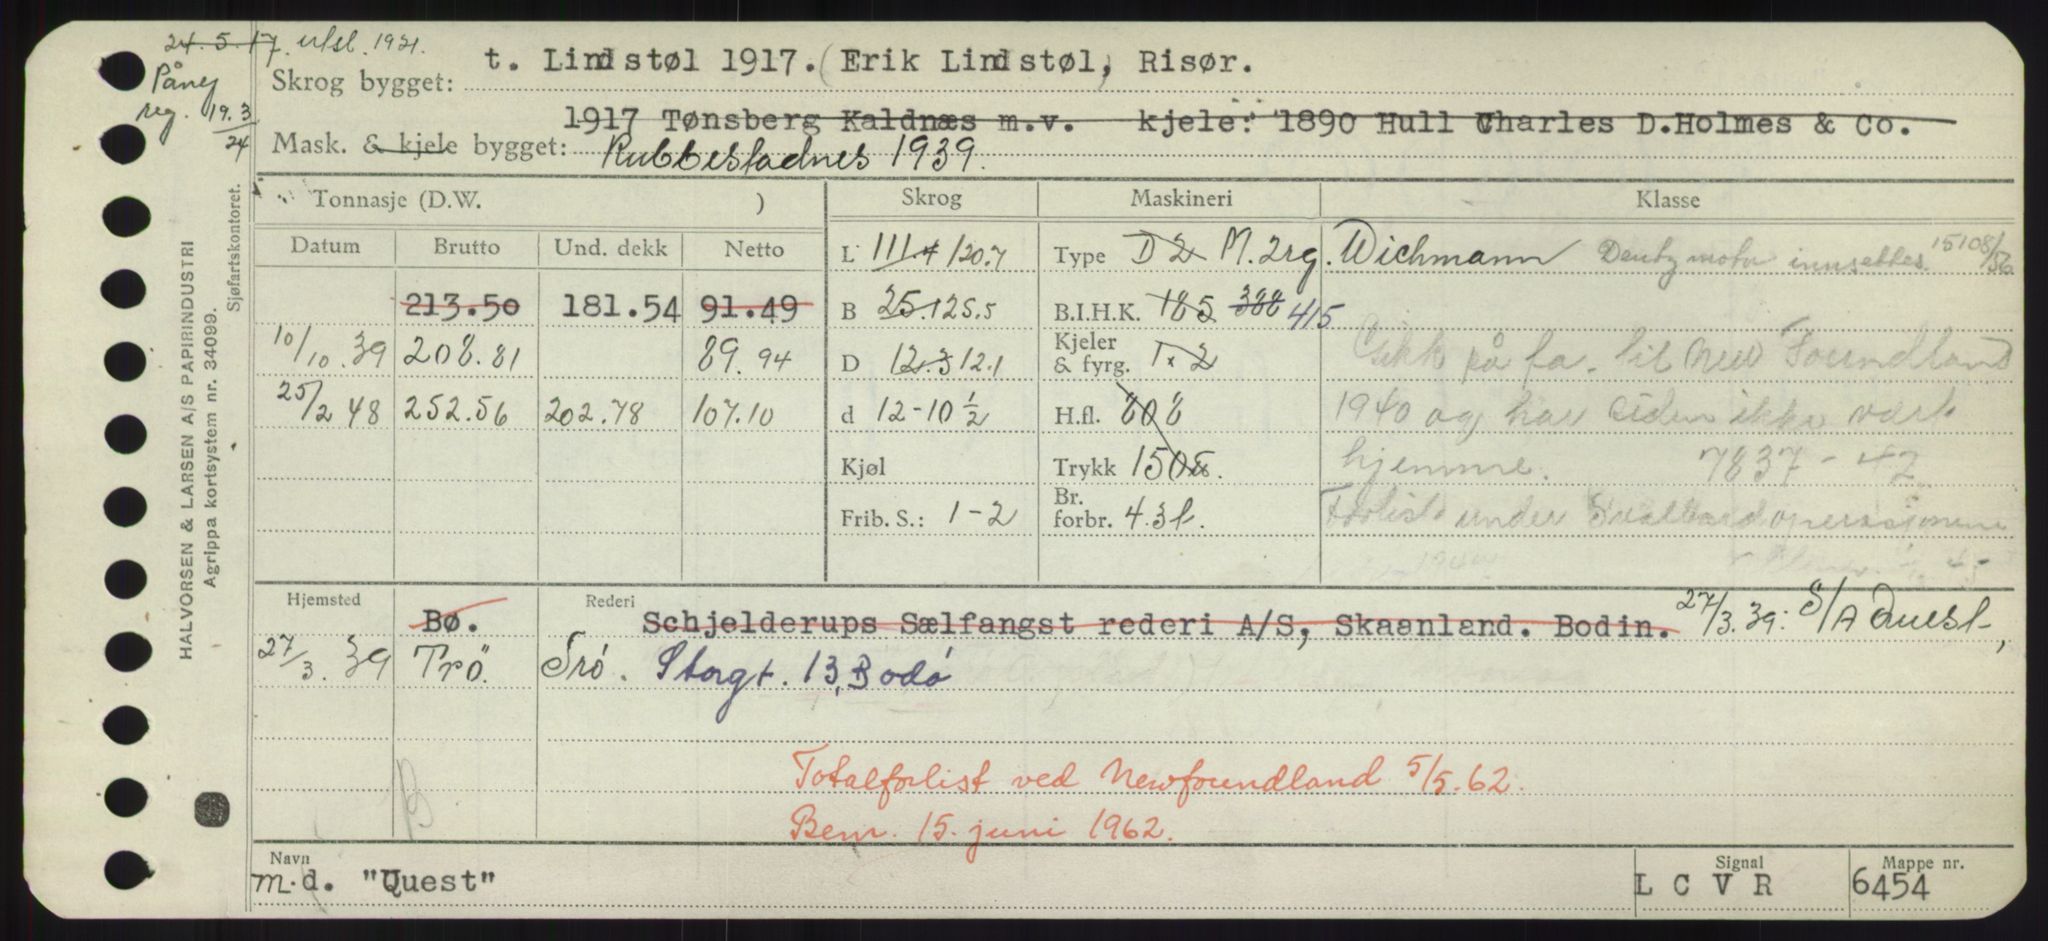 24.5.17. utsl. 1921.
Påny
reg. 19.3/24
Skrog bygget: t. Lindstøl 1917. (Erik Lindstøl, Risør.
1917 Tønsberg Kaldnæs m.v. kjele: 1890 Hull Charles D.Holmes & Co.
Mask. & kjele bygget: Rubbestadnes 1939.
Tonnasje (D.W. ) Skrog Maskineri Klasse
Datum Brutto Und. dekk Netto
L 111.4 120.7 Type D 2 M. 2rg. Wichmann Deutz motor innsettes. 15108/56
213.50 181.54 91.49 B 25.1 25.5 B.I.H.K. 185 388 415
10/10.39 208.81 89.94 D 12.3 12.1 Kjeler & fyrg. 1 x 2 Gikk på fa. til New Foundland
25/2 48 252.56 202.78 107.10 d 12-10 1/2 H.fl. 808 1940 og har siden ikke vært
Kjøl Trykk 150 hjemme. 7837-42
Frib. S.: 1-2 Br. forbr. 4.3t. Forlist under Svalbardoperasjonene
Hjemsted Rederi
Bø. Schjelderups Sælfangst rederi A/S, Skaanland. Bodin. 27/3.39: S/A Quest,
27/3.39 Trö. Trö. Storgt. 13, Bodö
Totalforlist ved Newfoundland 5/5.62.
Bem. 15. juni 1962.
Navn Signal Mappe nr.
m.d. "Quest" L C V R 6454
HALVORSEN & LARSEN A/S PAPIRINDUSTRI
Agrippa kortsystem nr. 34099.
Sjøfartskontoret.